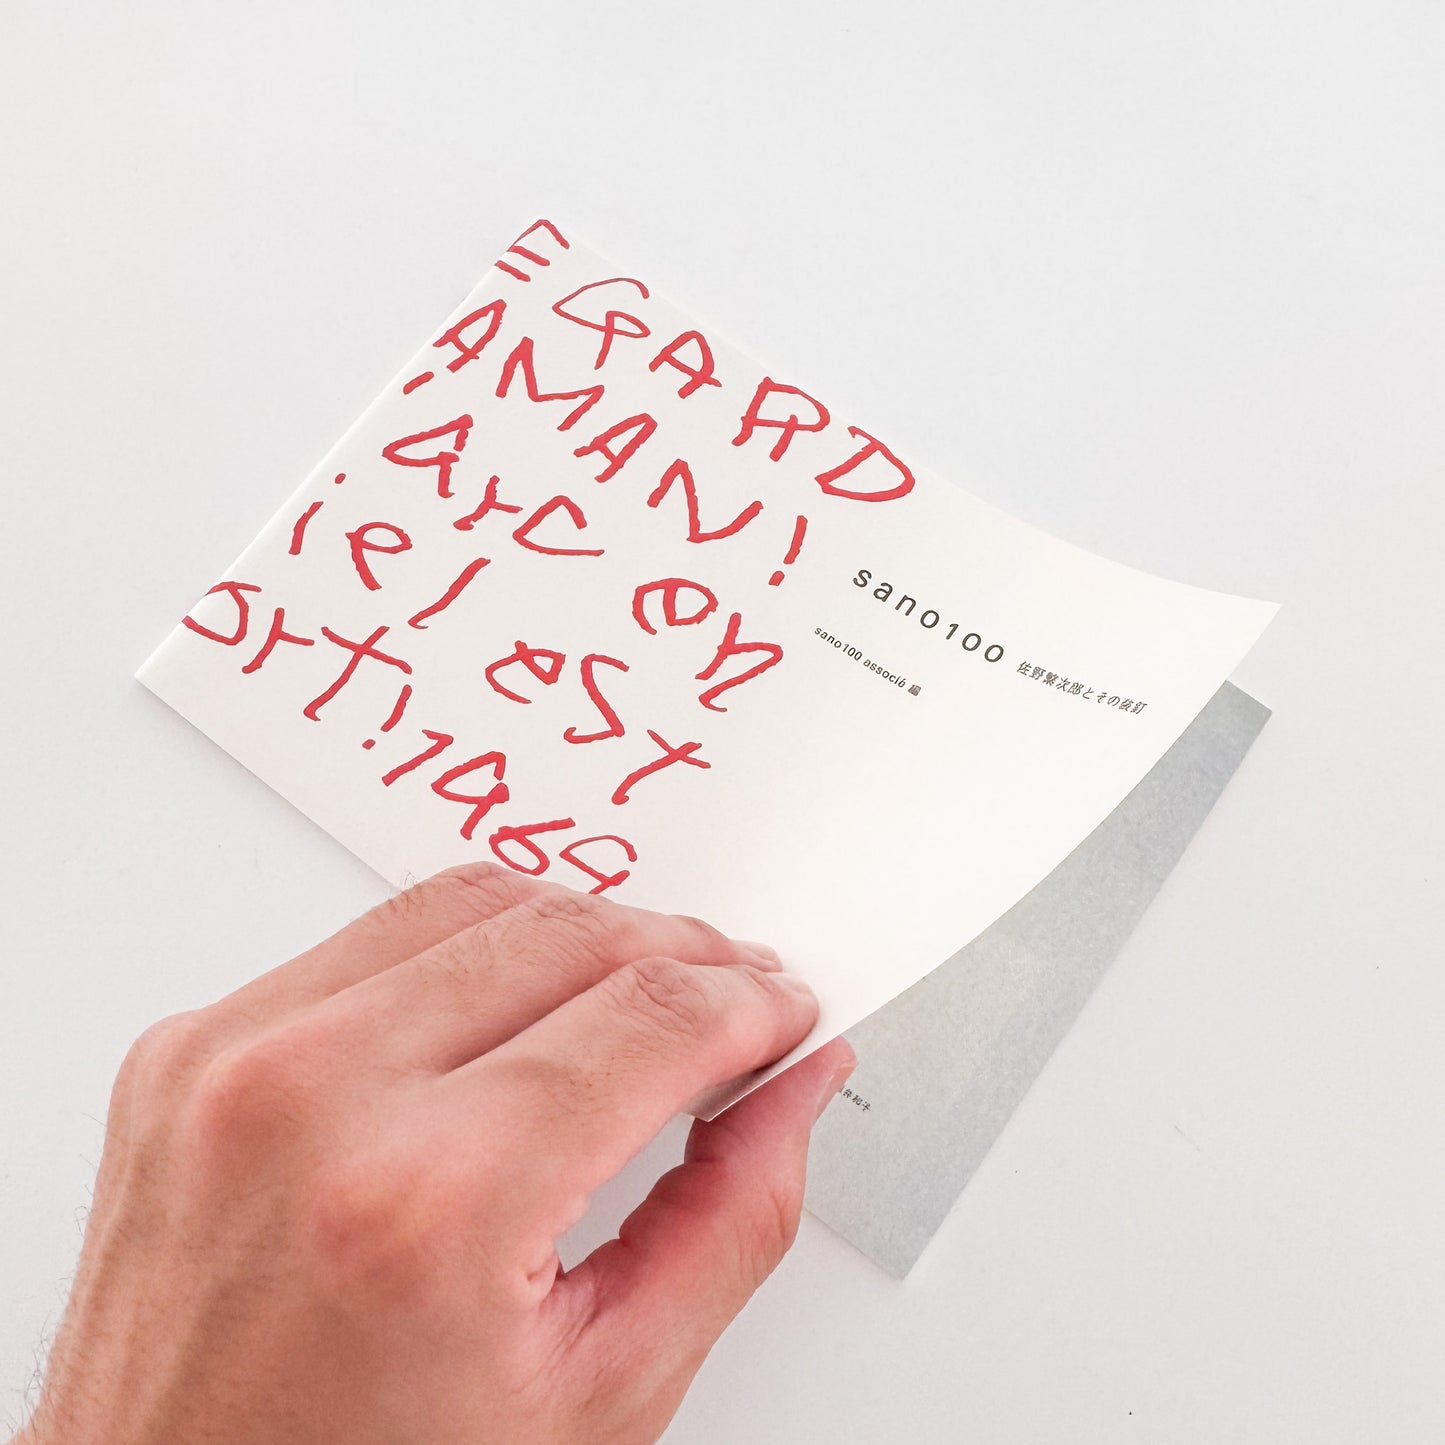 EGARD
AMAN!
arc en
iel est
ort! 1969
sano100 佐野繁次郎とその装釘
sano100 associé 編
和子